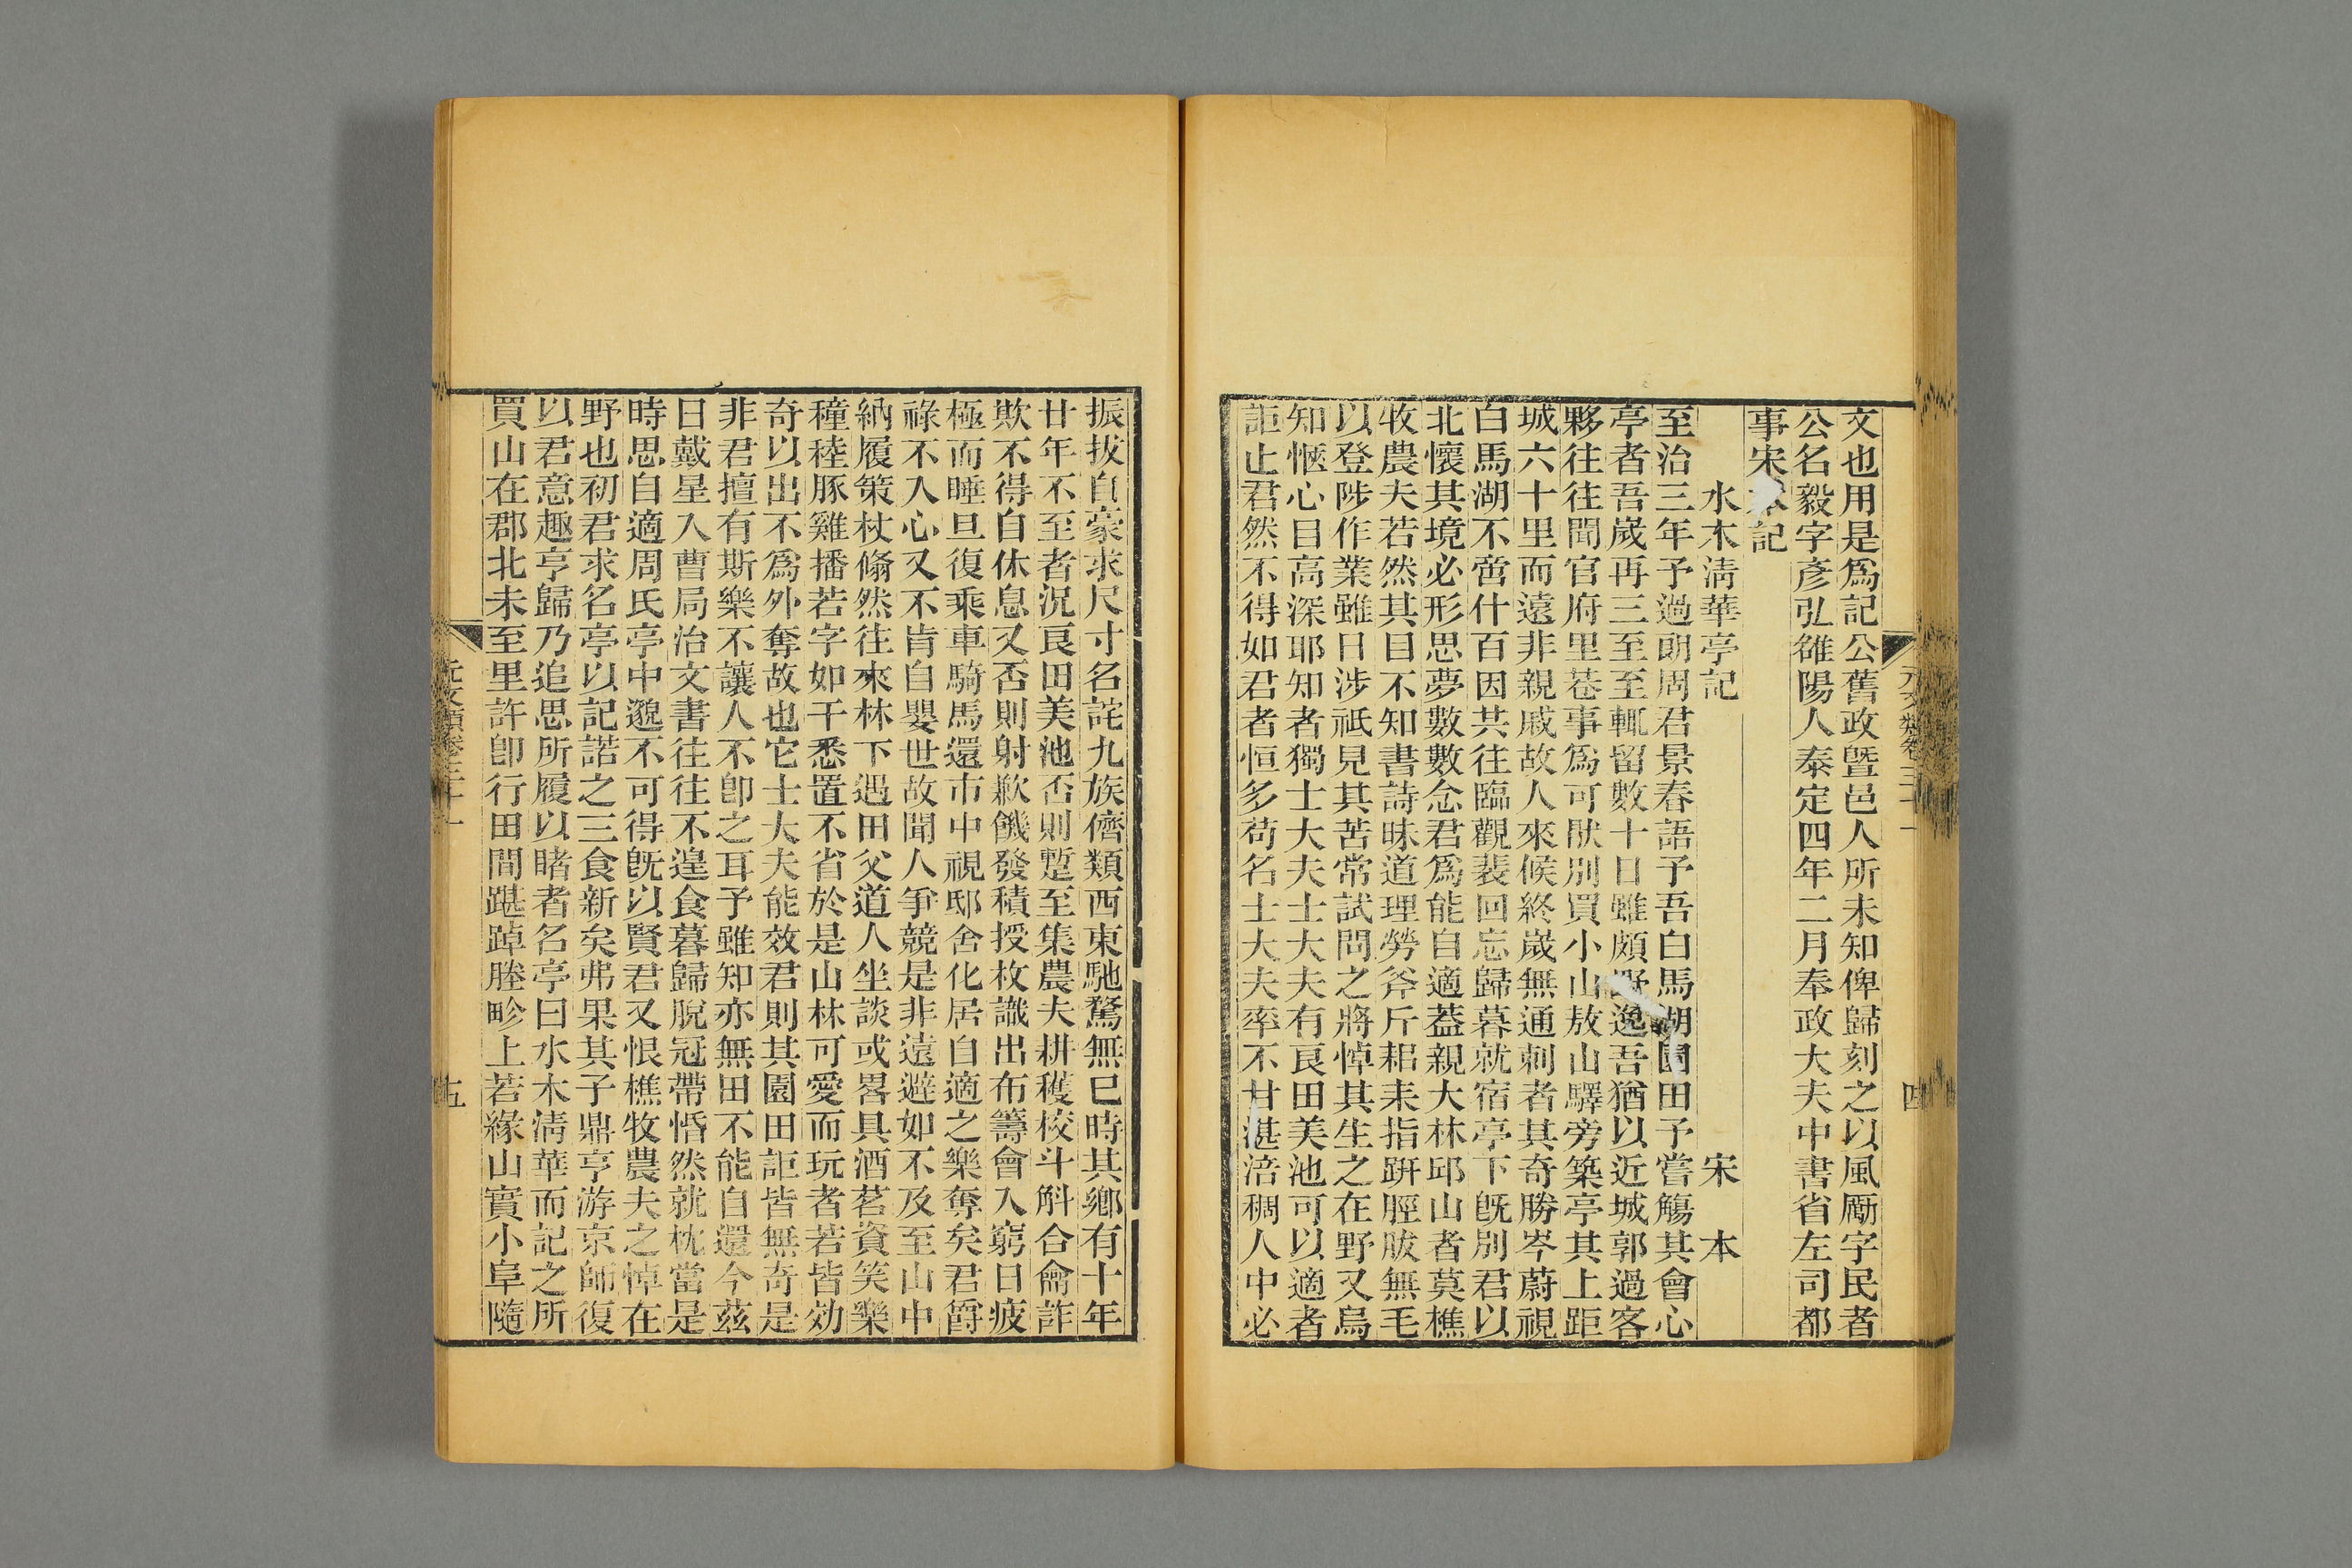 文也用是爲記公舊政曁邑人所未知俾歸刻之以風厲字民者
公名毅字彥弘雒陽人泰定四年二月奉政大夫中書省左司都
事宋本記
水木淸華亭記 宋本
至治三年予過朗周君景春語予吾白馬湖園田予嘗觴其會心
亭者吾歲再三至至輒留數十日雖頗野逸吾猶以近城郭過客
夥往往聞官府里巷事爲可猒別買小山敖山驛旁築亭其上距
城六十里而遠非親戚故人來候終歲無通刺者其奇勝岑蔚視
白馬湖不啻什百因共往臨觀裴回忘歸暮就宿亭下旣別君以
北懷其境必形思夢數數念君爲能自適葢親大林邱山者莫樵
牧農夫若然其目不知書詩昧道理勞斧斤耜耒指趼脛胈無毛
以登陟作業雖日涉祇見其苦常試問之將悼其生之在野又烏
知愜心目高深耶知者獨士大夫士大夫有良田美池可以適者
詎止君然不得如君者恒多苟名士大夫率不甘湛涪稠人中必
元文類卷三十一 四
振拔自豪求尺寸名詫九族儕類西東馳騖無已時其鄉有十年
廿年不至者況良田美池否則蹔至集農夫耕穫校斗斛合龠詐
欺不得自休息又否則射歉饑發積授枚識出布籌會入窮日疲
極而睡旦復乘車騎馬還市中視邸舍化居自適之樂奪矣君爵
祿不入心又不肯自嬰世故聞人爭競是非遠避如不及至山中
納履策杖翛然往來林下遇田父道人坐談或畧具酒茗資笑樂
穜稑豚雞播若字如干悉置不省於是山林可愛而玩者若皆効
奇以出不爲外奪故也它士大夫能效君則其園田詎皆無奇是
非君擅有斯樂不讓人不卽之耳予雖知亦無田不能自還今茲
日戴星入曹局治文書往往不遑食暮歸脫冠帶惛然就枕當是
時思自適周氏亭中邈不可得旣以賢君又恨樵牧農夫之悼在
野也初君求名亭以記諾之三食新矣弗果其子鼎亨游京師復
以君意趣亨歸乃追思所履以睹者名亭曰水木淸華而記之所
買山在郡北未至里許卽行田間踸踔塍畛上若緣山實小阜隨
元文類卷三十一 五